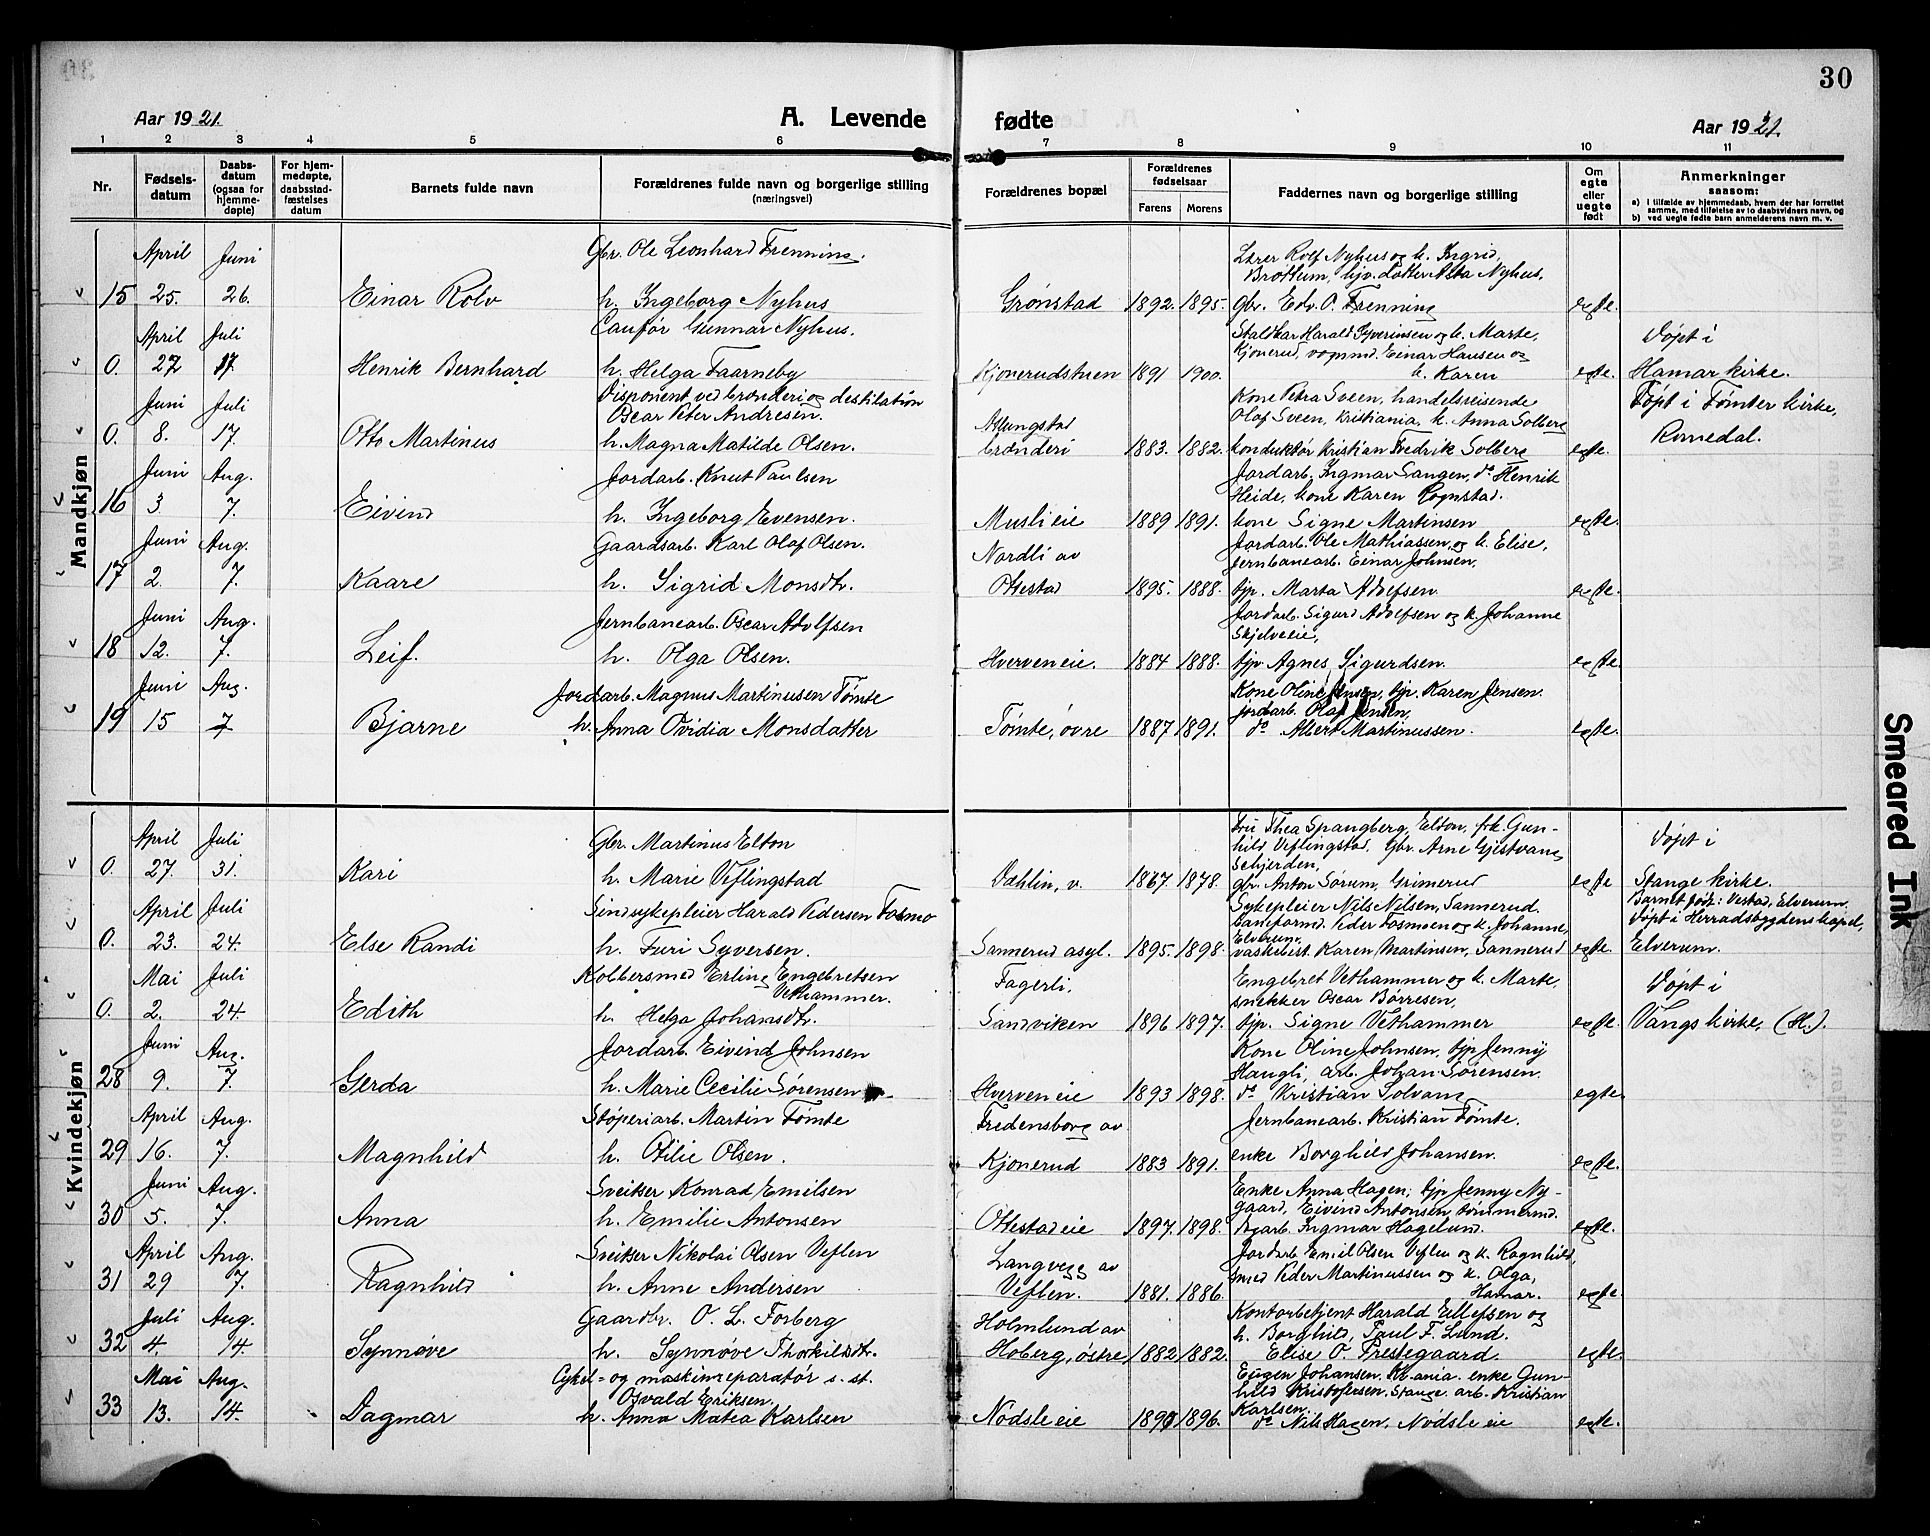 30
Aar 1921.
A. Levende fødte
Aar 1921.
1 2 3 4 5 6 7 8 9 10 11
Nr.
Fødselsdatum
Daabsdatum (ogsaa for hjemmedøpte)
For hjemmedøpte, daabsstadfæstelses datum
Barnets fulde navn
Forældrenes fulde navn og borgerlige stilling
(næringsvei)
Forældrenes bopæl
Forældrenes fødselsaar
Farens Morens
Faddernes navn og borgerlige stilling
Om egte eller uegte født
Anmerkninger
saasom:
a) I tilfælde av hjemmedaab, hvem der har forrettet samme, med tilføielse av to daabsvidners navn, og
b) ved uegte fødte barn anmelderens navn m. v.
Mandkjøn
April Juni Gbr. Ole Leonhard Frenning. Lærer Rolf Nyhus og h. Ingrid,
Brøttum, hjv. datter Asta Nyhus,
15 25. 26. Einar Rolv h. Ingeborg Nyhus Grønstad 1892. 1895. gbr. Edv. O. Frenning egte.
April Juli Gunnar Nyhus. Staldkar Harald Syverinsen og h. Marte, Døpt i
Kjonerud, vognmd. Einar Hansen og
0. 27 17. Henrik Bernhard h. Helga Faarneby Kjonerudstuen 1891 1900. h. Karen egte. Hamar kirke.
Juni Juli Disponent ved brænderi og destilation Kone Petra Sveen, handelsreisende Døpt i Tømter kirke,
Oscar Peter Andresen. Atlungstad Olaf Sveen, Kristiania, k. Anna Solberg
0. 8. 17. Otto Martinus h. Magna Matilde Olsen. brænderi 1883. 1882. konduktør Kristian Fredrik Solberg egte. Romedal.
Juni Aug. Jordarb. Knut Paulsen Jordarb. Ingmar Sangen, do Henrik
Heide, kone Karen Rognstad.
16 3. 7. Eivind h. Ingeborg Evensen. Musli eie 1889 1891. kone Signe Martinsen egte.
Juni Aug. Gaardsarb. Karl Olaf Olsen. Nordli av Jordarb. Ole Mathiassen og h. Elise,
jernbanearb. Einar Johnsen,
17 2. 7. Kaare h. Sigrid Monsdtr. Ottestad 1895. 1888. tjp. Marta Adolfsen egte.
Juni Aug. Jernbanearb. Oscar Adolfsen Jordarb. Sigurd Adolfsen og k. Johanne
Skjelveeie,
18 12. 7. Leif. h. Olga Olsen. Hverven eie. 1884 1888. tjp Agnes Sigurdsen. egte.
Juni Aug. Jordarb. Magnus Martinusen Tømte Kone Oline Jensen, tjp. Karen Jensen.
jordarb. Olaf Jensen,
19 15 7 Bjarne h. Anna Ovidia Monsdatter Tømte, øvre 1887 1891. do Albert Martinussen. egte.
Kvindekjøn
April Juli Gbr. Martinus Elton Fru Thea Spangberg, Elton, frk. Gun- Døpt i
hild Veflingstad, Gbr. Arne Gjestvang
Schjerden,
0. 27. 31. Kari h. Marie Veflingstad Dæhlin, v. 1867. 1878. gbr. Anton Sørum, Grimerud egte Stange kirke.
April Juli Sindsykepleier Harald Pedersen Fosmo Sykepleier Nils Nilsen, Sannerud. Barnet født: Vestad, Elverum.
baneformd. Peder Fosmoen og k. Johanne, Døpt i Herradsbygdens kapel,
Elverum,
0. 23. 24. Else Randi h. Furi Syversen. Sannerud asyl. 1895. 1898. vaskebest. Karen Martinsen, Sannerud egte. Elverum.
Mai Juli Kobbersmed Erling Engebretsen Fagerli, Engebret Vethammer og k. Marte, Døpt i
Vethammer. snekker Oscar Børresen,
0. 2. 24. Edith h. Helga Johansdtr. Sandviken 1896 1897. tjp. Signe Vethammer egte. Vangs kirke, (H.).
Juni Aug. Jordarb. Eivind Johnsen Kone Oline Johnsen, tjp Jenny
Haugli, arb. Johan Sørensen.
28 9. 7. Gerda h. Marie Cecilie Sørensen Hverven eie 1893 1898. do Kristian Solvang egte.
April Aug. Støperiarb. Martin Tømte Fredensborg av Jernbanearb. Kristian Tømte.
29 16. 7. Magnhild h. Otilie Olsen. Kjonerud 1883 1891. enke Borghild Johansen. egte.
Juni Aug. Sveitser Konrad Emilsen Enke Anna Hagen; tjp Jenny Ny-
gaard, Eivind Antonsen tømmermd.
30 5. 7. Anna h. Emilie Antonsen Ottestad eie 1897. 1898. Ingmar Hagelund. egte.
April Aug. Sveitser Nikolai Olsen Veflen Langvegg av Jordarb. Emil Olsen Veflen og k. Ragnhild,
smed Peder Martinussen og k. Olga,
31 29 7. Ragnhild h. Anne Andersen Veflen. 1881. 1886. Hamar. egte.
Juli Aug. Gaardbr. O. L. Forberg Holmlund av Kontorbetjent Harald Ellefsen og
h. Borghild, Paul F. Lund.
32 4. 14. Synnøve h. Synnøve Thorkildsdtr. Hoberg, østre 1882 1882. Elise O. Prestegaard. egte.
Mai Aug. Cykel- og maskinreparatør s. st. Eugen Johansen, Kr.ania. enke Gun-
Osvald Eriksen hild Kristofersen, Stange. arb. Kristian
Karlsen.
33 13. 14. Dagmar h. Anna Matea Karlsen Nødsle eie 1896. do Nils Hagen, Nødsle eie egte.
Smeared Ink